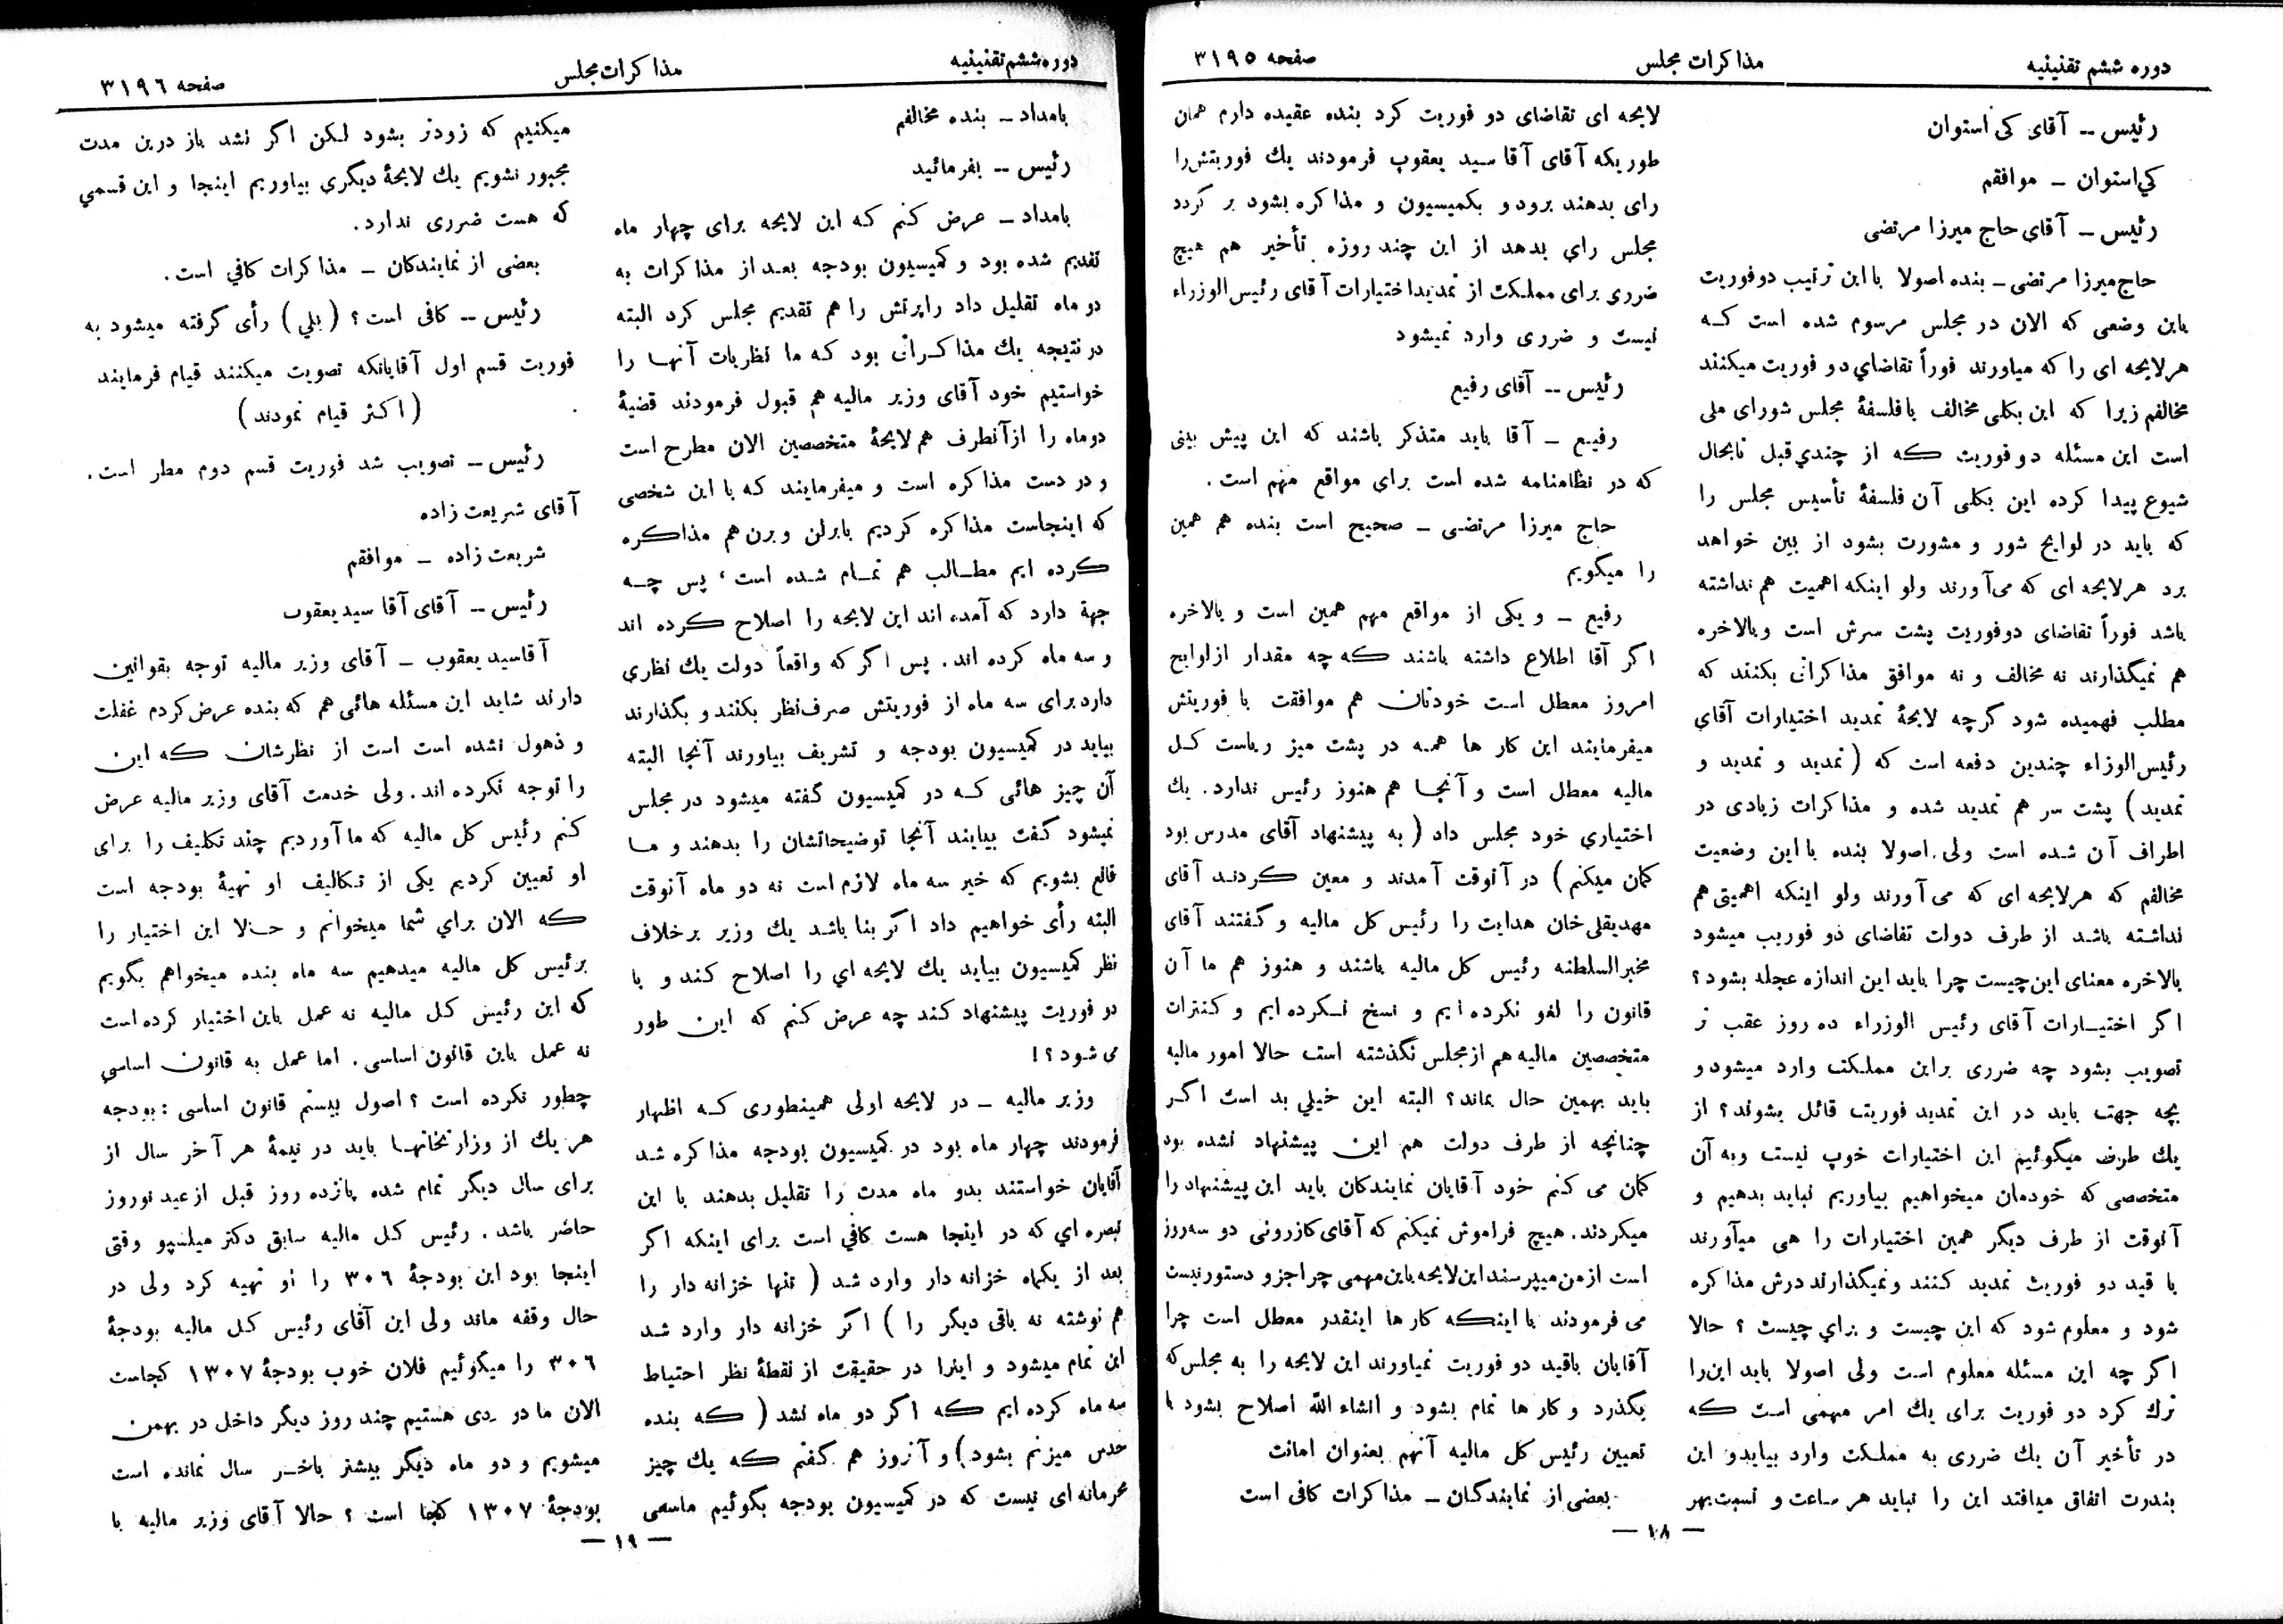 دوره ششم تقنینیه
مذاکرات مجلس
صفحه ۳۱۹۵
رئیس -- آقای کی استوان
کی‌استوان - موافقم
رئیس - آقای حاج میرزا مرتضی
حاج میرزا مرتضی - بنده اصولا با این ترتیب دو فوریت
باین وضعی که الان در مجلس مرسوم شده است که
هر لایحه ای را که میاورند فوراً تقاضای دو فوریت میکنند
مخالفم زیرا که این بکلی مخالف با فلسفهٔ مجلس شورای ملی
است این مسئله دو فوریت که از چندی قبل تابحال
شیوع پیدا کرده این بکلی آن فلسفهٔ تأسیس مجلس را
که باید در لوایح شور و مشورت بشود از بین خواهد
برد هر لایحه ای که می‌آورند ولو اینکه اهمیت هم نداشته
باشد فوراً تقاضای دو فوریت پشت سرش است و بالاخره
هم نمیگذارند نه مخالف و نه موافق مذاکراتی بکنند که
مطلب فهمیده شود گرچه لایحهٔ تمدید اختیارات آقای
رئیس الوزاء چندین دفعه است که ( تمدید و تمدید و
تمدید ) پشت سر هم تمدید شده و مذاکرات زیادی در
اطراف آن شده است ولی اصولا بنده با این وضعیت
مخالفم که هر لایحه ای که می آورند ولو اینکه اهمیتی هم
نداشته باشد از طرف دولت تقاضای دو فوریت میشود
بالاخره معنای این چیست چرا باید این اندازه عجله بشود ؟
اگر اختیارات آقای رئیس الوزراء ده روز عقب تر
تصویب بشود چه ضرری براین مملکت وارد میشود و
بچه جهت باید در این تمدید فوریت قائل بشوند ؟ از
یك طرف میگوئیم این اختیارات خوب نیست و به آن
متخصصی که خودمان میخواهیم بیاوریم نباید بدهیم و
آنوقت از طرف دیگر همین اختیارات را هی میآورند
با قید دو فوریت تمدید کنند و نمیگذارند درش مذاکره
شود و معلوم شود که این چیست و برای چیست ؟ حالا
اگر چه این مسئله معلوم است ولی اصولا باید این را
ترك کرد دو فوریت برای یك امر مهمی است که
در تأخیر آن یك ضرری به مملکت وارد بیاید و این
بندرت اتفاق میافتد این را نباید هر ساعت و نسبت بهر
لایحه ای تقاضای دو فوریت کرد بنده عقیده دارم همان
طوریکه آقای آقا سید یعقوب فرمودند یك فوریتش را
رای بدهند برود و بکمیسیون و مذاکره بشود بر گردد
مجلس رای بدهد از این چند روزه تأخیر هم هیچ
ضرری برای مملکت از تمدید اختیارات آقای رئیس الوزراء
نیست و ضرری وارد نمیشود
رئیس -- آقای رفیع
رفیع - آقا باید متذکر باشند که این پیش بینی
که در نظامنامه شده است برای مواقع مهم است .
حاج میرزا مرتضی - صحیح است بنده هم همین
را میگویم
رفیع - و یکی از مواقع مهم همین است و بالاخره
اگر آقا اطلاع داشته باشند که چه مقدار از لوایح
امروز معطل است خودتان هم موافقت با فوریتش
میفرمایند این کار ها همه در پشت میز ریاست کل
مالیه معطل است و آنجا هم هنوز رئیس ندارد . یك
اختیاری خود مجلس داد ( به پیشنهاد آقای مدرس بود
گمان میکنم ) در آنوقت آمدند و معین کردند آقای
مهدیقلی خان هدایت را رئیس کل مالیه و گفتند آقای
مخبرالسلطنه رئیس کل مالیه باشند و هنوز هم ما آن
قانون را لغو نکرده ایم و نسخ نکرده ایم و کنترات
متخصصین مالیه هم از مجلس نگذشته است حالا امور مالیه
باید بهمین حال بماند ؟ البته این خیلی بد است اگر
چنانچه از طرف دولت هم این پیشنهاد نشده بود
گمان می کنم خود آقایان نمایندگان باید این پیشنهاد را
میکردند . هیچ فراموش نمیکنم که آقای کازرونی دو سه روز
است از من میپرسند این لایحه باین مهمی چرا جزو دستور نیست
می فرمودند با اینکه کار ها اینقدر معطل است چرا
آقایان باقید دو فوریت نمیاورند این لایحه را به مجلس که
بگذرد و کار ها تمام بشود و انشاء الله اصلاح بشود با
تعیین رئیس کل مالیه آنهم بعنوان امانت
بعضی از نمایندگان - مذاکرات کافی است
— ۱۸ —
دوره ششم تقنینیه
مذاکرات مجلس
صفحه ۳۱۹۶
بامداد - بنده مخالفم
رئیس -- بفرمائید
بامداد - عرض کنم که این لایحه برای چهار ماه
تقدیم شده بود و کمیسیون بودجه بعد از مذاکرات به
دو ماه تقلیل داد راپرتش را هم تقدیم مجلس کرد البته
در نتیجه یك مذاکراتی بود که ما نظریات آنها را
خواستیم خود آقای وزیر مالیه هم قبول فرمودند قضیهٔ
دو ماه را از آنطرف هم لایحهٔ متخصصین الان مطرح است
و در دست مذاکره است و میفرمایند که با این شخصی
که اینجاست مذاکره کردیم بابرلن و برن هم مذاکره
کرده ایم مطالب هم تمام شده است ، پس چه
جهة دارد که آمده اند این لایحه را اصلاح کرده اند
و سه ماه کرده اند . پس اگر که واقعاً دولت یك نظری
دارد برای سه ماه از فوریتش صرف نظر بکنند و بگذارند
بیاید در کمیسیون بودجه و تشریف بیاورند آنجا البته
آن چیز هائی که در کمیسیون گفته میشود در مجلس
نمیشود گفت بیایند آنجا توضیحاتشان را بدهند و ما
قانع بشویم که خیر سه ماه لازم است نه دو ماه آنوقت
البته رأی خواهیم داد اگر بنا باشد یك وزیر برخلاف
نظر کمیسیون بیاید یك لایحه ای را اصلاح کند و با
دو فوریت پیشنهاد کند چه عرض کنم که این طور
می شود ؟ !
وزیر مالیه - در لایحه اولی همینطوری که اظهار
فرمودند چهار ماه بود در کمیسیون بودجه مذاکره شد
آقایان خواستند بدو ماه مدت را تقلیل بدهند با این
تبصره ای که در اینجا هست کافی است برای اینکه اگر
بعد از یکماه خزانه دار وارد شد ( تنها خزانه دار را
هم نوشته نه باقی دیگر را ) اگر خزانه دار وارد شد
این تمام میشود و اینرا در حقیقت از نقطهٔ نظر احتیاط
سه ماه کرده ایم که اگر دو ماه نشد ( که بنده
حدس میزنم بشود ) و آنروز هم گفتم که یك چیز
محرمانه ای نیست که در کمیسیون بودجه بگوئیم ماسعی
میکنیم که زودتر بشود لکن اگر نشد باز درین مدت
مجبور نشویم یك لایحهٔ دیگری بیاوریم اینجا و این قسمی
که هست ضرری ندارد .
بعضی از نمایندکان - مذاکرات کافی است .
رئیس -- کافی است ؟ ( بلی ) رأی گرفته میشود به
فوریت قسم اول آقایانکه تصویت میکنند قیام فرمایند
( اکثر قیام نمودند )
رئیس -- تصویب شد فوریت قسم دوم مطر است .
آقای شریعت زاده
شریعت زاده - موافقم
رئیس -- آقای آقا سید یعقوب
آقاسید یعقوب - آقای وزیر مالیه توجه بقوانین
دارند شاید این مسئله هائی هم که بنده عرض کردم غفلت
و ذهول نشده است است از نظرشان که این
را توجه نکرده اند . ولی خدمت آقای وزیر مالیه عرض
کنم رئیس کل مالیه که ما آوردیم چند تکلیف را برای
او تعیین کردیم یکی از تکالیف او تهیهٔ بودجه است
که الان برای شما میخوانم و حالا این اختیار را
برئیس کل مالیه میدهیم سه ماه بنده میخواهم بگویم
که این رئیس کل مالیه نه عمل باین اختیار کرده است
نه عمل باین قانون اساسی . اما عمل به قانون اساسی
چطور نکرده است ؟ اصول بیستم قانون اساسی : بودجه
هر یك از وزارتخانها باید در نیمهٔ هر آخر سال از
برای سال دیگر تمام شده پانزده روز قبل از عید نوروز
حاضر باشد . رئیس کل مالیه سابق دکتر میلسپو وقتی
اینجا بود این بودجهٔ ۳۰۶ را او تهیه کرد ولی در
حال وقفه ماند ولی این آقای رئیس کل مالیه بودجهٔ
۳۰۶ را میگوئیم فلان خوب بودجهٔ ۱۳۰۷ کجاست
الان ما در دی هستیم چند روز دیگر داخل در بهمن
میشویم و دو ماه دیگر بیشتر باخر سال نمانده است
بودجهٔ ۱۳۰۷ کجا است ؟ حالا آقای وزیر مالیه با
— ۱۹ —